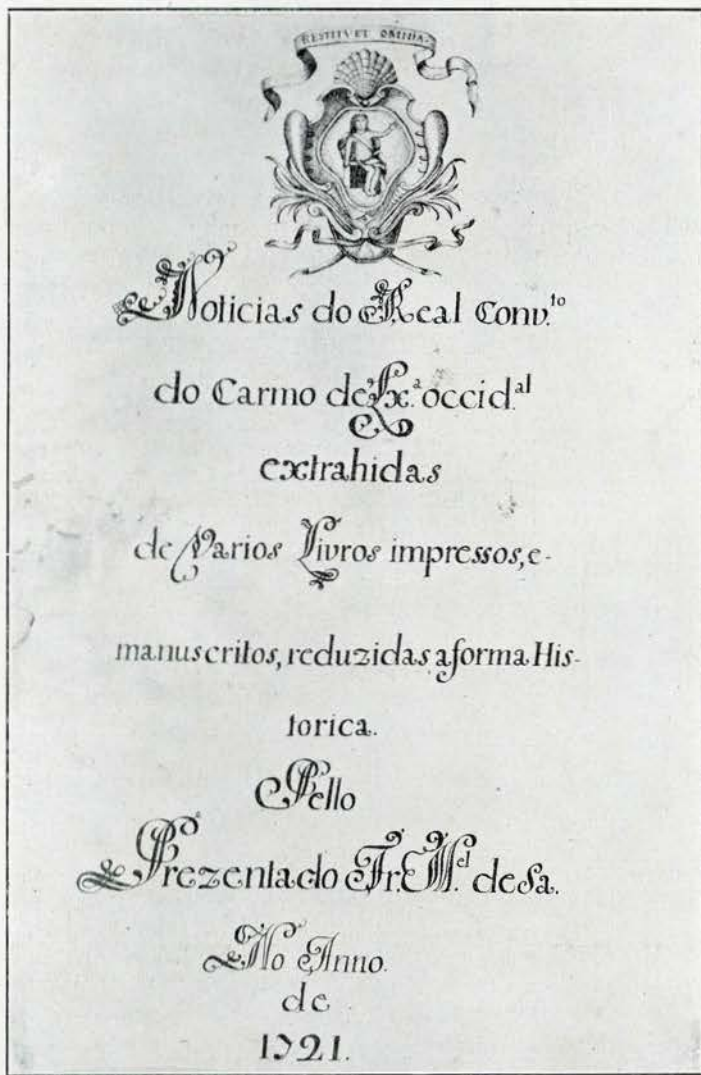 RESTITVET OMNIA
Noticias do Real Conv.to
do Carmo de Lx.a occid.al
extrahidas
de Varios Livros impressos, e-
manuscritos, reduzidas a forma His-
torica.
Pello
Prezentado Fr. M.el de Sa.
No Anno.
de
1721.